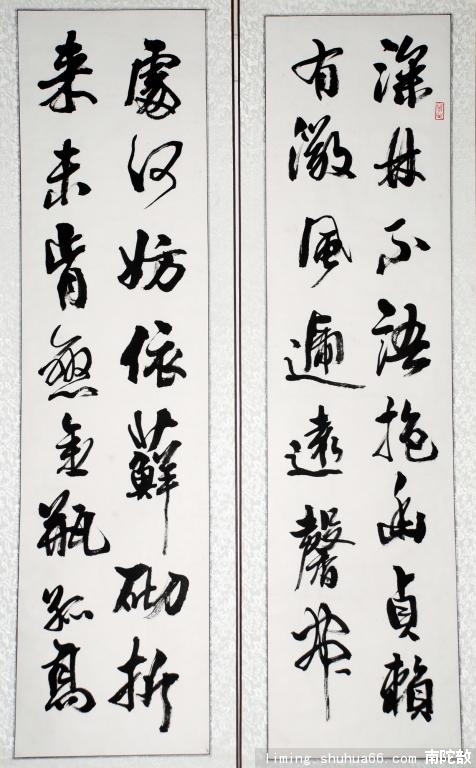 深林不語抱幽貞賴
有微風遞遠馨開
處何妨依蘚砌折
来未肯戀金瓶孤高
liming.shuhua66.com 南陀